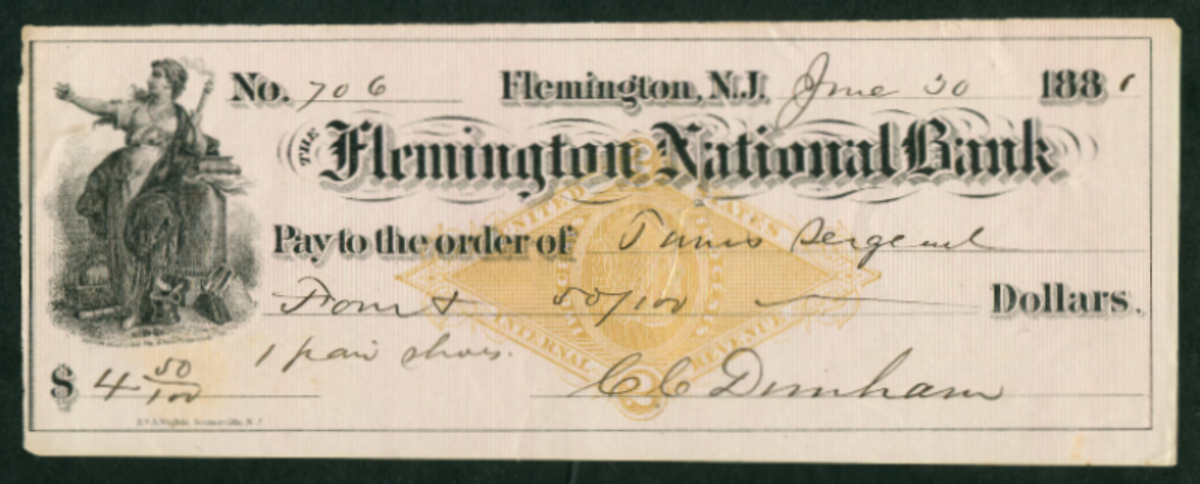 No. 706 Flemington, N.J. June 30 1881
THE Flemington National Bank
Pay to the order of James Sergeant
Four & 50/100 Dollars.
1 pair shoes.
$ 4 50/100 C C Dunham
UNITED STATES
INTERNAL REVENUE
2